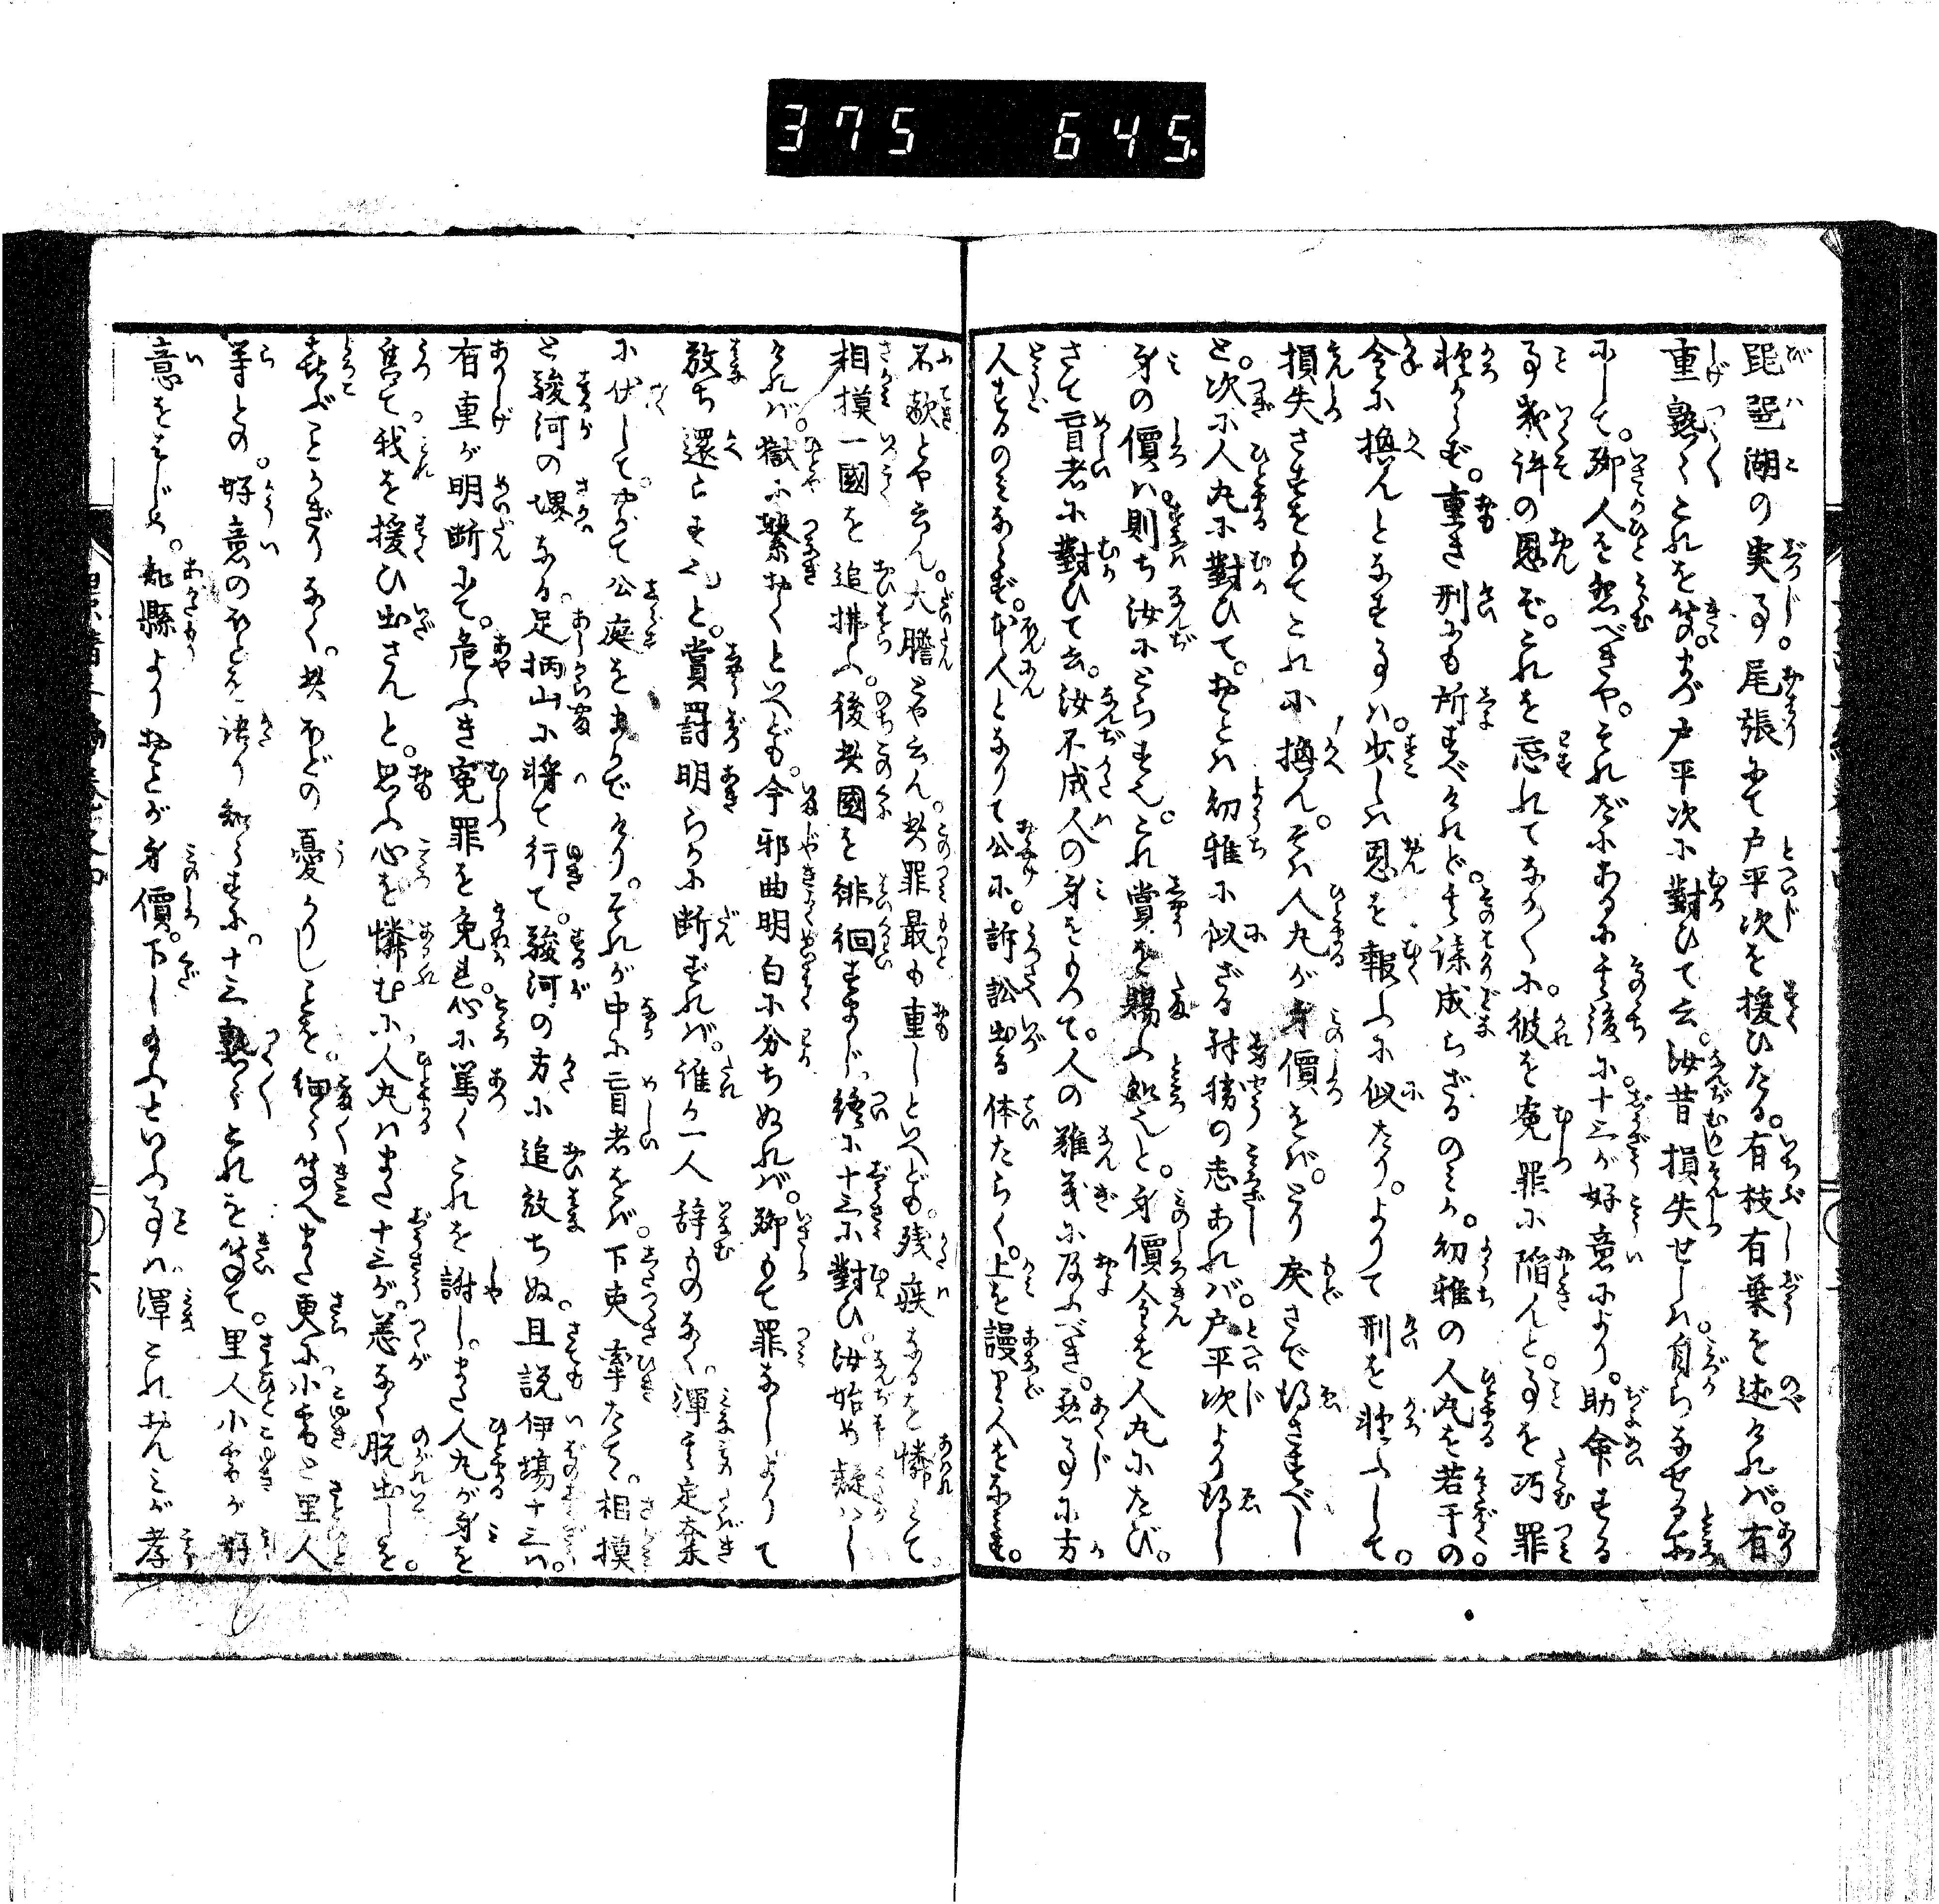 375 645.
琵琶湖の実事。尾張にて戸平次を援ひたる。有枝有葉を述けれバ。有
重熟〻これを聞。まづ戸平次に對ひて云。汝昔損失せしハ自らなせる所
にして。聊人を怨べきや。それだにあるに其後に十三が好意により。助命する
事幾許の恩ぞ。これを忘れてなか〱に。彼を寃罪に陥んと。事を巧罪
軽からず。重き刑にも所すべけれど。其謀成らざるのミか。幼雅の人丸を若干の
金に換んとなする事ハ。少しハ恩を報ふに似たり。よりて刑を軽ふして。
損失さするをもてこれに換ん。そハ人丸が身價をバ。とり戻さで得さすべし
と。次に人丸に對ひて。おとハ幼雅に似ざる殊勝の志あれバ。戸平次より得し
身の價ハ。則ち汝にとらすえ。これ賞を賜ふ処と。身價金を人丸にたび。
さて盲者に對ひて云。汝不成人の身をもつて。人の難義に及ぶべき。悪事に方
人するのミならず。本人となりて公に。訴訟出る体たらく。上を謾里人をなミす。
不敵とや云ん。大膽とや云ん。其罪最も重しといへども。残疾なるを憐ミて。
相摸一國を追拂ふ。後其國を徘徊すまじ。続に十三に對ひ。汝始め疑ハし
ければ。獄に繋おくといへども。今邪曲明白に分ちぬれバ。聊もて罪なしよりて
放ち還らすと。賞罰明らかに断ずれバ。誰か一人辞ものなく。渾其定案
に伏して。やがて公庭をまかでけり。それが中に盲者をバ。下吏牽たて。相摸
と駿河の堺なる。足柄山に将て行て。駿河の方に追放ちぬ。且説伊場十三ハ。
有重が明断にて。危ふき寃罪を免れ。心に篤くこれを謝し。また人丸が身を
售て。我を援ひ出さんと。思ふ心を憐むに。人丸ハまた十三が。恙なく脱出しを。
喜ぶことかぎりなく。其ほどの憂かりしことを。細〻聞へまた更に。小雪と里人
等との。好意のほどを語り知らすに。十三熟〻これを聞て。里人小雪が好
意をはじめ。知縣よりおとが身價。下し給ふといふ事ハ。渾これおんミが孝